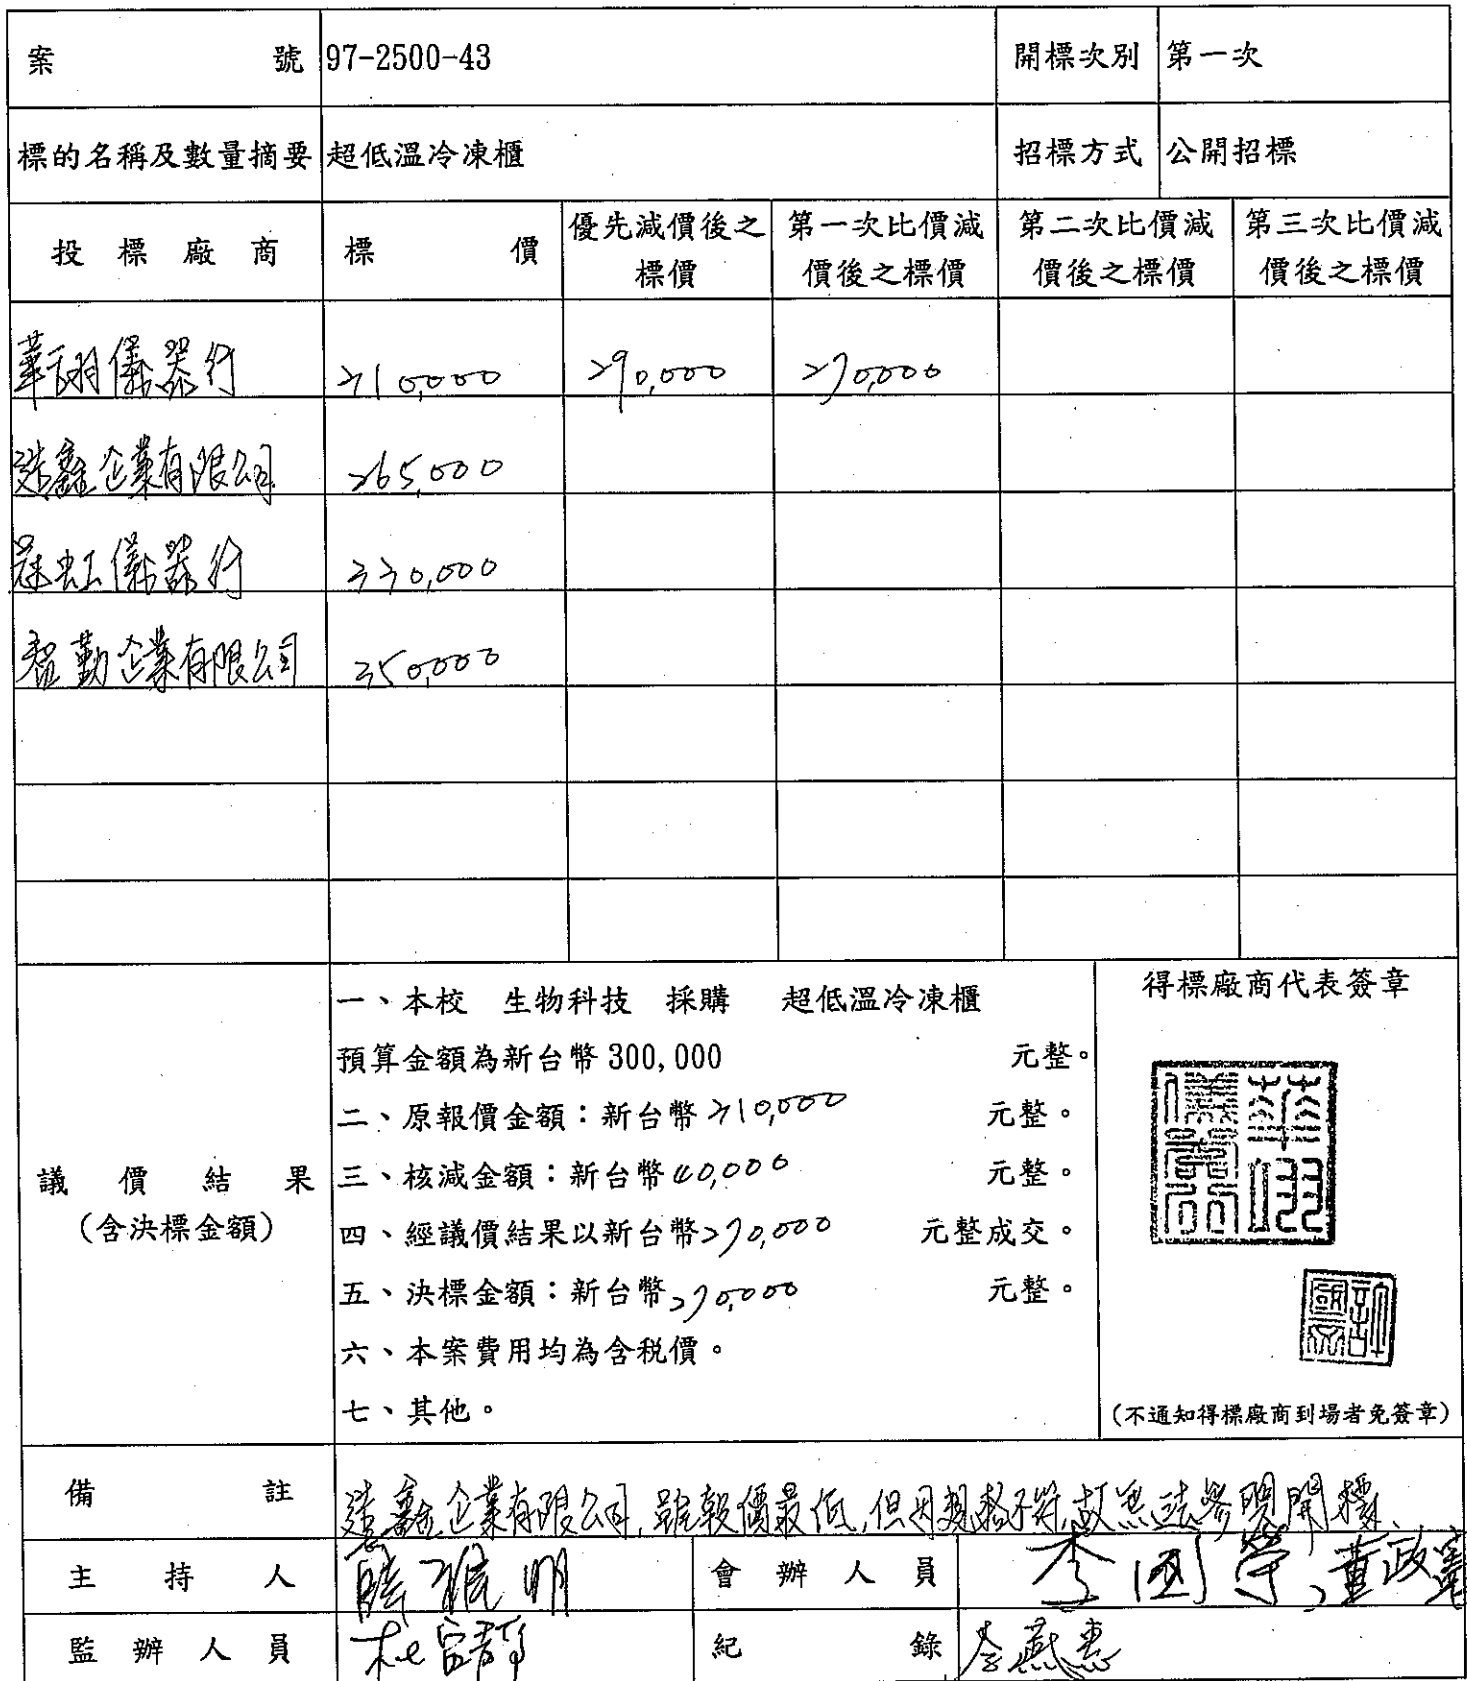 案號 97-2500-43 開標次別 第一次
標的名稱及數量摘要 超低溫冷凍櫃 招標方式 公開招標
投標廠商 標價 優先減價後之標價 第一次比價減價後之標價 第二次比價減價後之標價 第三次比價減價後之標價
華翊儀器行 310,000 290,000 270,000
鑫企業有限公司 265,000
冠虹儀器行 330,000
勤企業有限公司 350,000
議價結果
(含決標金額)
一、本校 生物科技 採購 超低溫冷凍櫃
預算金額為新台幣 300,000 元整。
二、原報價金額：新台幣 310,000 元整。
三、核減金額：新台幣 40,000 元整。
四、經議價結果以新台幣 270,000 元整成交。
五、決標金額：新台幣 270,000 元整。
六、本案費用均為含稅價。
七、其他。
得標廠商代表簽章
(不通知得標廠商到場者免簽章)
備註 鑫企業有限公司,雖報價最低,但因規格不符,故無法參與開標.
主持人 會辦人員 李國等、董政憲
監辦人員 紀錄 李燕惠